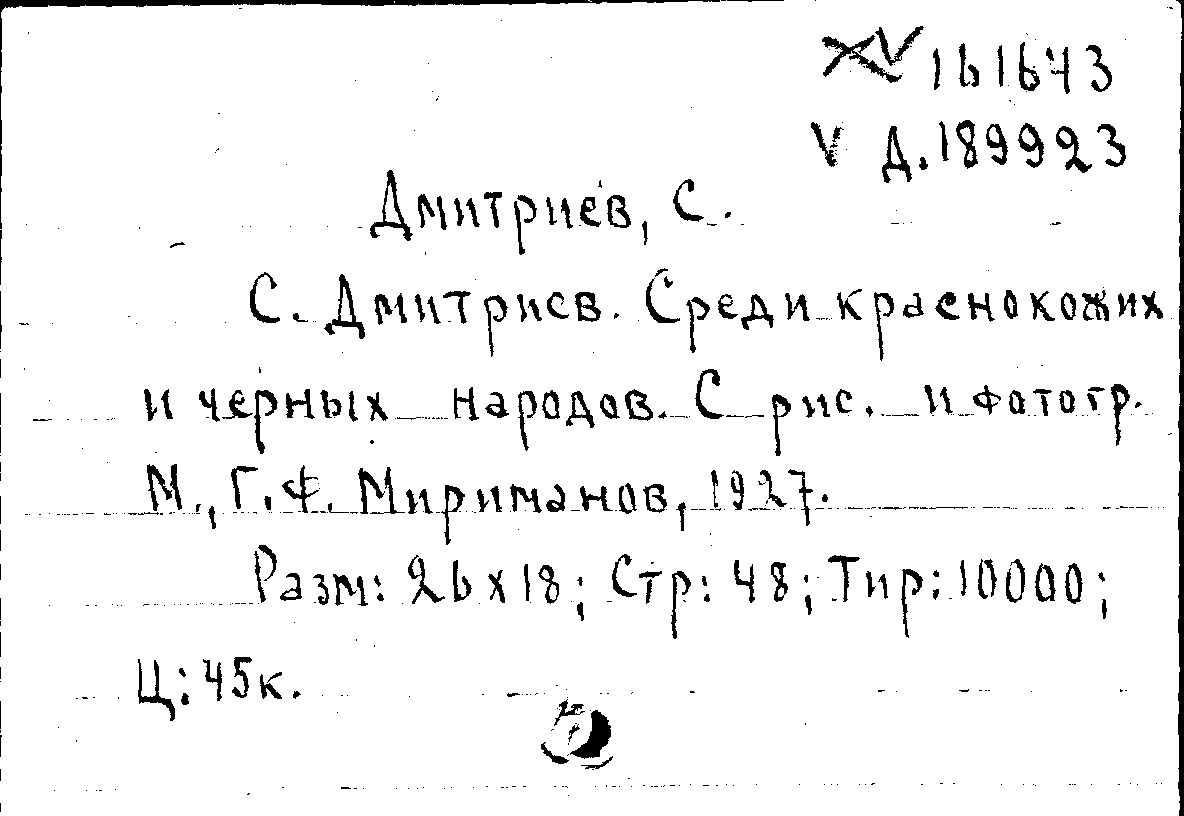 XV 161643
V Д.189923
Дмитриев, С.
С. Дмитриев. Среди краснокожих
и черных народов. С рис. и фотогр.
М., Г.Ф. Мириманов, 1927.
Разм: 26x18; Стр: 48; Тир: 10000;
Ц: 45к.